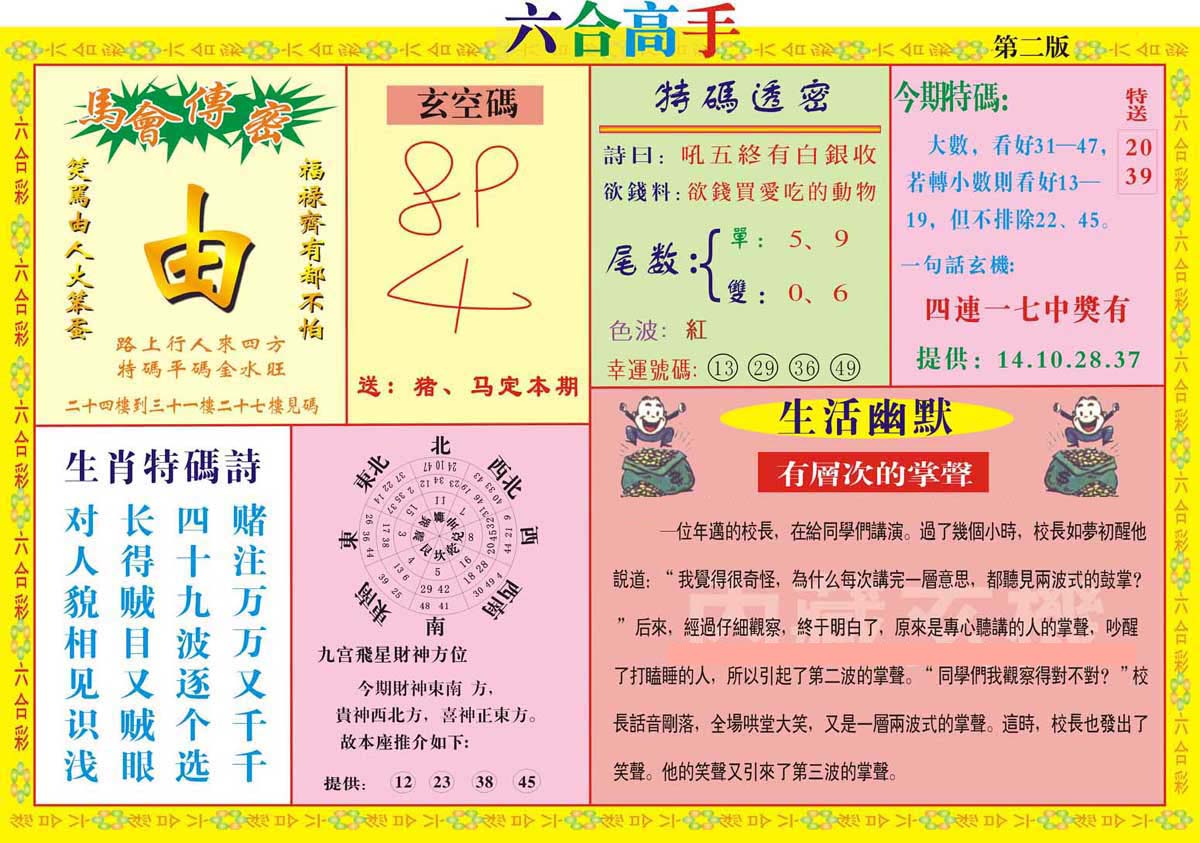 六合高手
第二版
馬會傳密
福禄齊有都不怕
由
笑罵由人大笨蛋
路上行人來四方
特碼平碼金水旺
二十四樓到三十一樓二十七樓見碼
玄空碼
送：猪、马定本期
特碼透密
詩曰：吼五終有白銀收
欲錢料：欲錢買愛吃的動物
尾数：
單：5、9
雙：0、6
色波：紅
幸運號碼：13 29 36 49
今期特碼：
特送
20
39
大數，看好31—47，
若轉小數則看好13—
19，但不排除22、45。
一句話玄機：
四連一七中獎有
提供：14.10.28.37
生肖特碼詩
赌注万万又千千
四十九波逐个选
长得贼目又贼眼
对人貌相见识浅
北
西北
西
西南
南
東南
東
東北
九宫飛星財神方位
今期財神東南 方，
貴神西北方，喜神正東方。
故本座推介如下：
提供： 12 23 38 45
生活幽默
有層次的掌聲
一位年邁的校長，在給同學們講演。過了幾個小時，校長如夢初醒他
說道：“我覺得很奇怪，為什么每次講完一層意思，都聽見兩波式的鼓掌？
”后來，經過仔細觀察，終于明白了，原來是專心聽講的人的掌聲，吵醒
了打瞌睡的人，所以引起了第二波的掌聲。“同學們我觀察得對不對？”校
長話音剛落，全場哄堂大笑，又是一層兩波式的掌聲。這時，校長也發出了
笑聲。他的笑聲又引來了第三波的掌聲。
六合彩